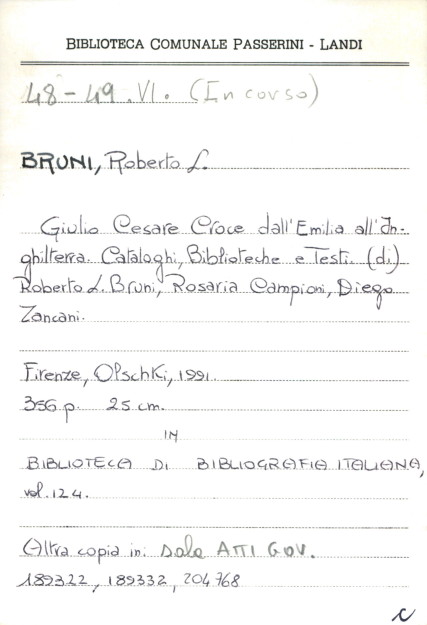 BIBLIOTECA COMUNALE PASSERINI - LANDI
48-49.VI. (In corso)
BRUNI, Roberto L.
Giulio Cesare Croce dall'Emilia all'In-
ghilterra. Cataloghi, Biblioteche e Testi. (di)
Roberto L. Bruni, Rosaria Campioni, Diego
Zancani.
Firenze, Olschki, 1991.
356 p. 25 cm.
IN
BIBLIOTECA DI BIBLIOGRAFIA ITALIANA,
vol. 124.
Altra copia in: sala ATTI GOV.
189322, 189332, 204768
C